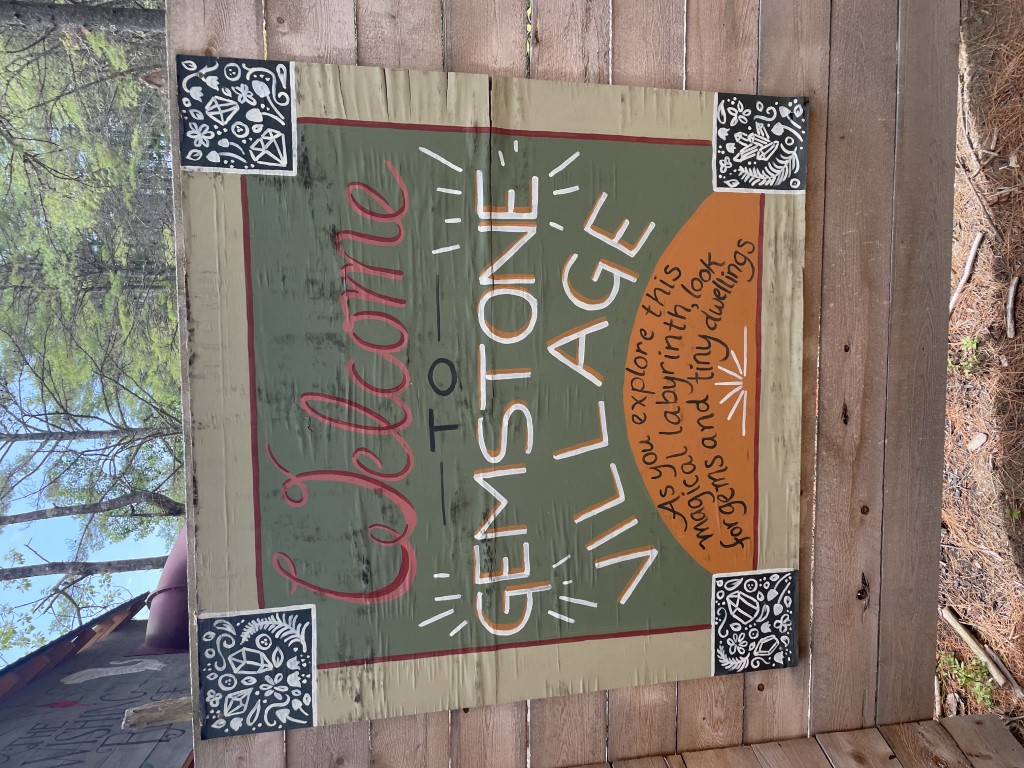 THE
WISHING
Welcome
TO
GEMSTONE
VILLAGE
As you explore this
magical labyrinth, look
for gems and tiny dwellings